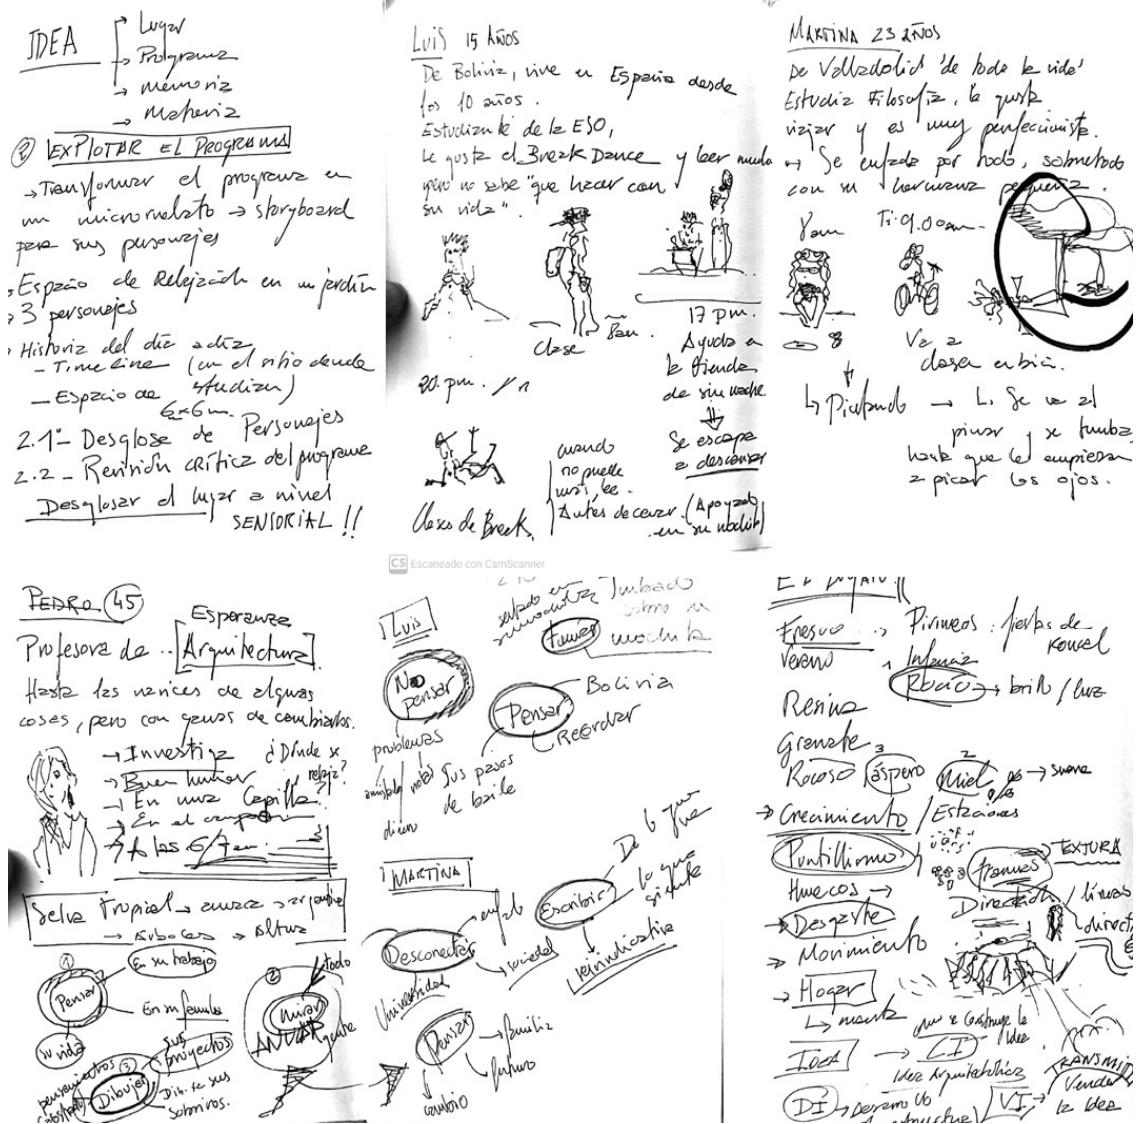 IDEA
Lugar
Programa
memoria
Materia
② EXPLOTAR EL PROGRAMA
→ Transformar el programa en
un microrrelato → storyboard
para sus personajes
Espacio de Relajación en un jardín
3 personajes
Historia del día a día
- Timeline (en el sitio donde
estudian)
- Espacio de
6x6m.
2.1º- Desglose de Personajes
2.2 - Revisión crítica del programa
Desglosar el lugar a nivel
SENSORIAL !!
LUIS 15 AÑOS
De Bolivia, vive en España desde
los 10 años.
Estudiante de la ESO,
Le gusta el Break Dance y leer mucho
pero no sabe "que hacer con
su vida".
Clase 8am.
17 pm.
Ayuda en
la tienda
de su madre
Se escapa
a descansar
(Apoyado
en su mochila)
20. pm.
Clases de Break.
cuando
no puede
más, lee.
Antes de cenar.
CS Escaneado con CamScanner
MARTINA 23 AÑOS
De Valladolid 'de toda la vida'
Estudia Filosofía, le gusta
viajar y es muy perfeccionista.
→ Se enfada por todo, sobretodo
con su hermana pequeña.
8am
9.00am.
Va a
clase en bici.
Picando → Se va al
pinar y se tumba
hasta que le empiezan
a picar los ojos.
PEDRO 45
Esperanza
Profesora de .. [Arquitectura].
Hasta las narices de algunas
cosas, pero con ganas de cambiarlas.
→ Investiga
→ Buen humor
→ En una Capilla?
→ En el campo
→ A las 6/7am.
¿Dónde se
relaja?
Selva Tropical →
→ Árboles → Altura
① Pensar
En su trabajo
En su familia
su vida
③ Dibujar
sus
proyectos
pensamientos
Dib. de sus
sobrinos.
② Mirar
todo
ANULAR
LUIS
No
pensar
problemas
notas
dinero
Pensar
Bolivia
Recordar
sus pasos
de baile
sentado en
su mochila
Fumar
Tumbado
sobre su
mochila
MARTINA
Desconectar
enfado
sociedad
Universidad
Pensar
familia
futuro
cambio
Escribir
De lo que
lo que
siente
reivindicativa
Fresco → Pirineos : fiestas de
Verano
Infancia
Rocío → brillo / luz
Resina
Granate
Rocoso
3 áspero
2 Miel → suave
→ Crecimiento / Estaciones
Puntillismo
Tramas → TEXTURA
Huecos →
Dirección
líneas
→ Desgaste
→ Movimiento
→ Hogar
↳ manta
IDEA → CI
que se construye la
idea
Idea Arquitectónica
DI → Desarrollo
VI → TRANSMITIR
Vender
la Idea